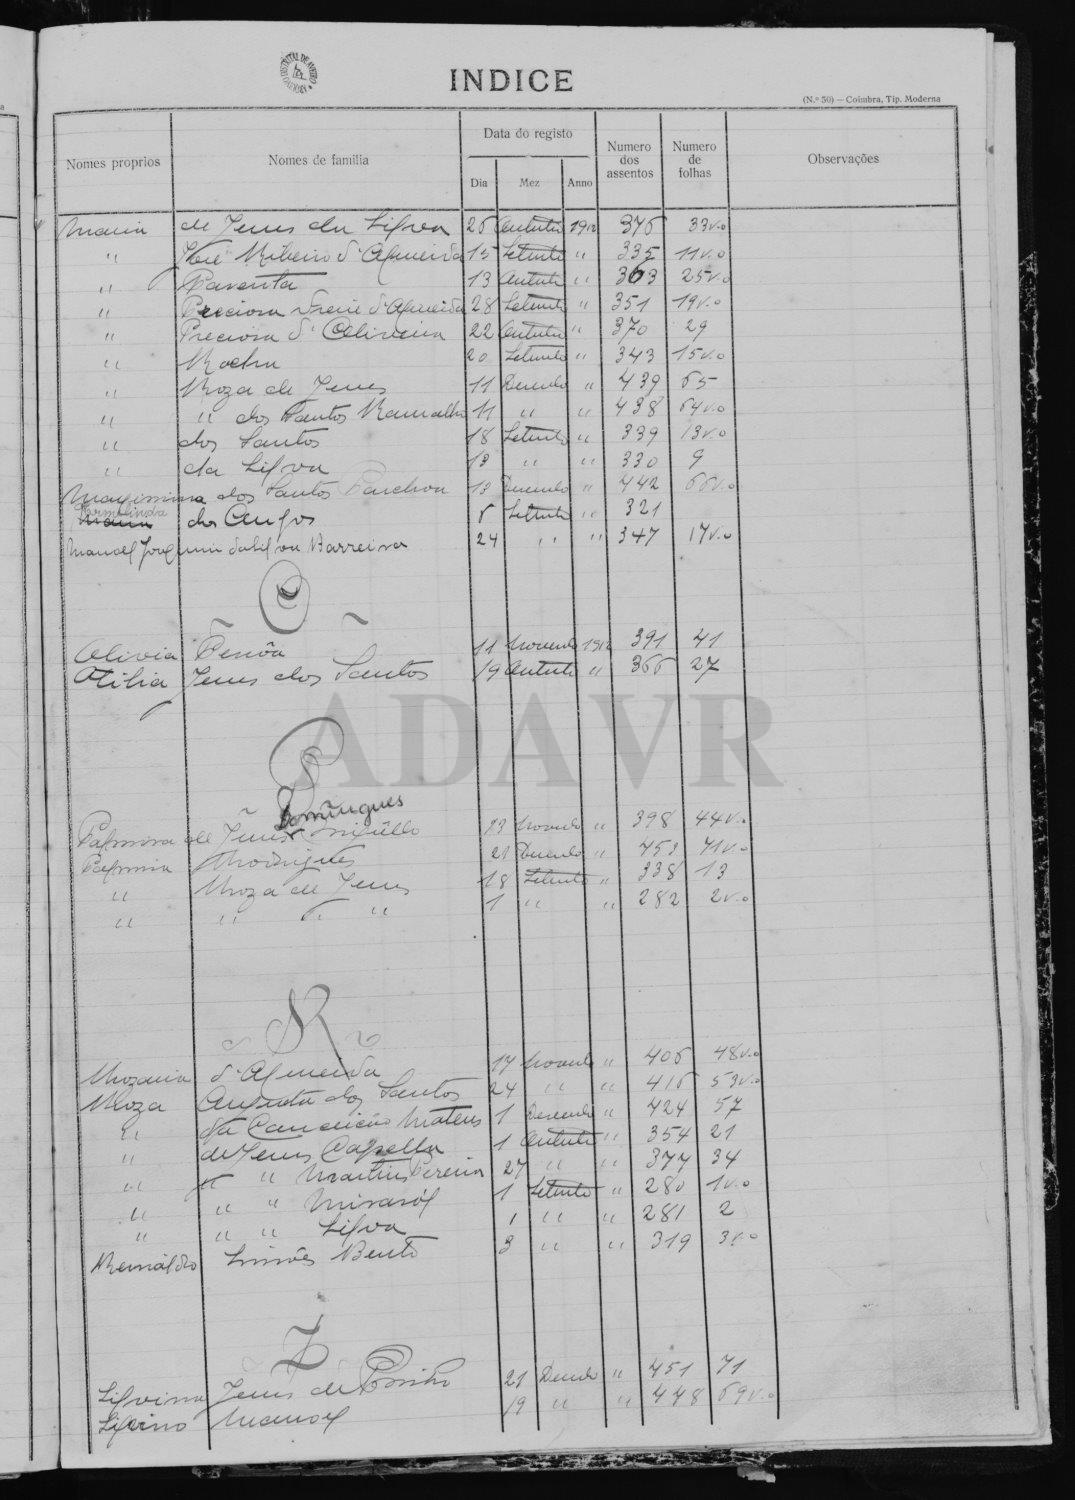 INDICE
(N.º 50) — Coimbra, Tip. Moderna
Nomes proprios Nomes de familia Data do registo Dia Mez Anno Numero dos assentos Numero de folhas Observações
Maria de Jesus da Silva 26 Outubro 1912 376 33v.o
" José Ribeiro d'Almeida 15 Setembro " 335 11v.o
" 13 Outubro " 363 25v.o
" Preciosa Freire d'Almeida 28 Setembro " 351 19v.o
" Preciosa d'Oliveira 22 Outubro " 370 29
" Rocha 20 Setembro " 343 15v.o
" Roza de Jesus 11 Dezembro " 439 65
" " dos Santos Ramalho 11 " " 438 64v.o
" dos Santos 18 Setembro " 339 13v.o
" da Silva 13 " " 330 9
Maxissima dos Santos 13 Dezembro " 442 66v.o
Hermelinda
Maria dos Anjos 6 Setembro " 321
Manoel Joaquim da Silva Barreira 24 " " 347 17v.o
O
Olivia 11 Novembro 1912 391 41
Otilia Jesus dos Santos 19 Outubro " 366 27
ADAVR
P
Domingues
Palmira de Jesus 13 Novembro " 398 44v.o
Palmira Rodrigues 21 Dezembro " 453 71v.o
" Roza de Jesus 18 Setembro " 338 13
" " " " 1 " " 282 2v.o
R
Rozaria d'Almeida 17 Novembro " 406 48v.o
Roza Augusta dos Santos 24 " " 416 53v.o
" da Conceição Mateus 1 Dezembro " 424 57
" de Jesus Capella 1 Outubro " 354 21
" " " Martins Pereira 27 " " 377 34
" " " Mirasól 1 Setembro " 280 1v.o
" " " Silva 1 " " 281 2
Reinaldo Simões Bento 3 " " 319 3v.o
S
Silvina Jesus de Pinho 21 Dezembro " 451 71
Silvino Manoel 19 " " 448 69v.o